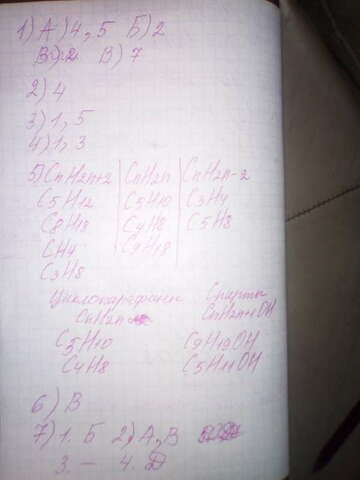 1) А) 4, 5 Б) 2
В) 7
2) 4
3) 1, 5
4) 1, 3
5) CnH2n+2 | CnH2n | CnH2n-2
C5H12 C5H10 C3H4
C8H18 C4H8 C5H8
CH4 C9H18
C3H8
Циклопарафины Спирты
CnH2n CnH2n+1OH
C5H10 C9H19OH
C4H8 C5H11OH
6) В
7) 1. Б 2) А, В
3. – 4. Д